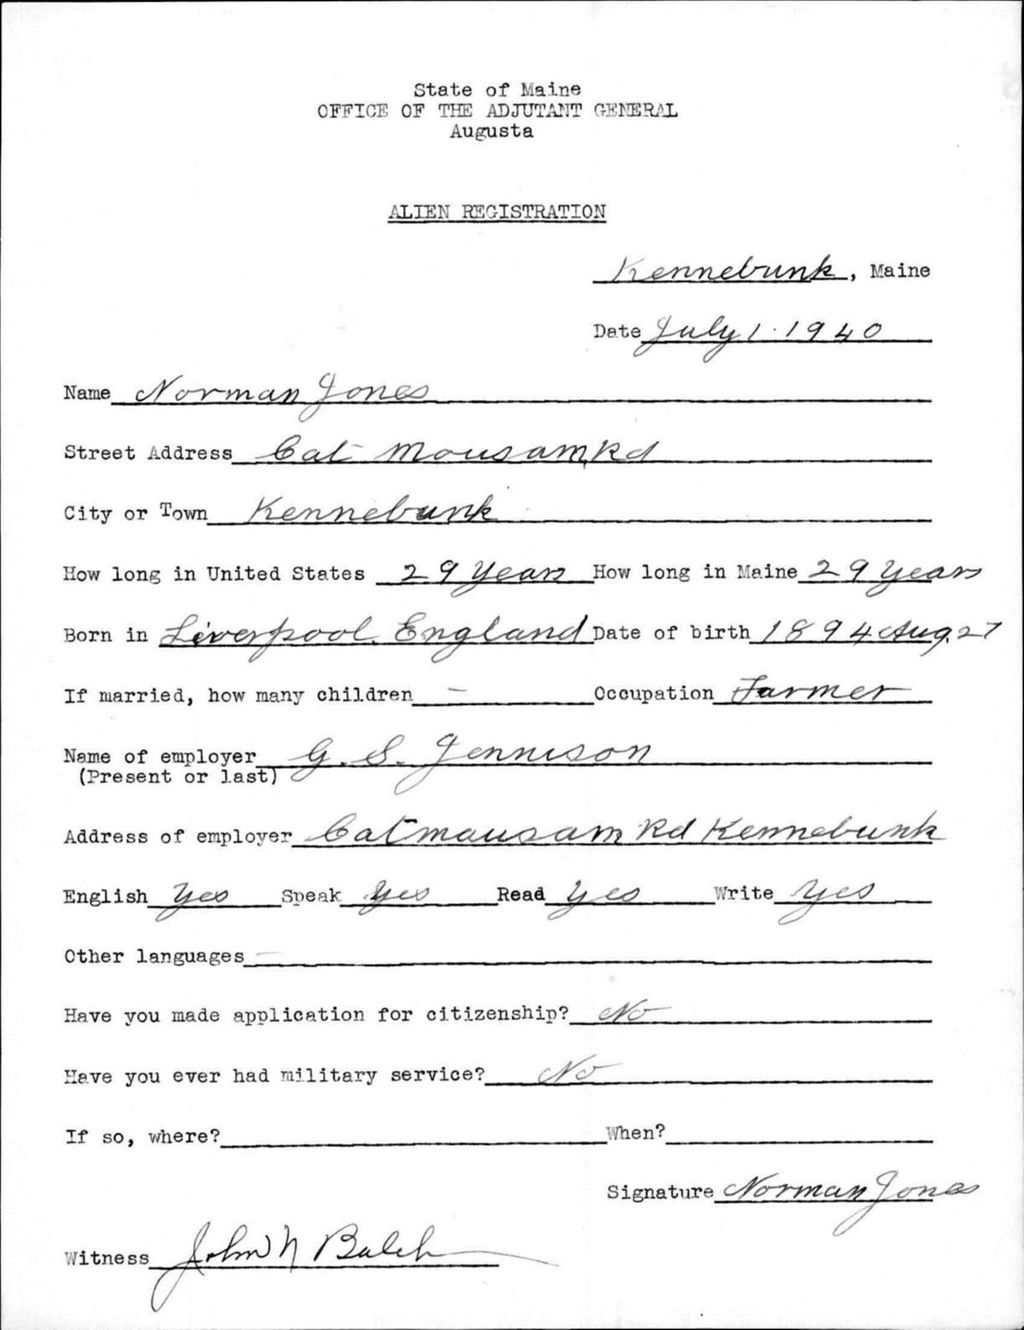 State of Maine
OFFICE OF THE ADJUTANT GENERAL
Augusta
ALIEN REGISTRATION
Kennebunk, Maine
Date July 1 · 1940
Name Norman Jones
Street Address Cat Mousam Rd
City or Town Kennebunk
How long in United States 29 Years How long in Maine 29 Years
Born in Liverpool England Date of birth 1894 Aug. 27
If married, how many children - Occupation Farmer
Name of employer G. S. Jennison
(Present or last)
Address of employer Cat mausam Rd Kennebunk
English Yes Speak Yes Read Yes Write Yes
Other languages -
Have you made application for citizenship? No
Have you ever had military service? No
If so, where? When?
Signature Norman Jones
Witness John N Balch